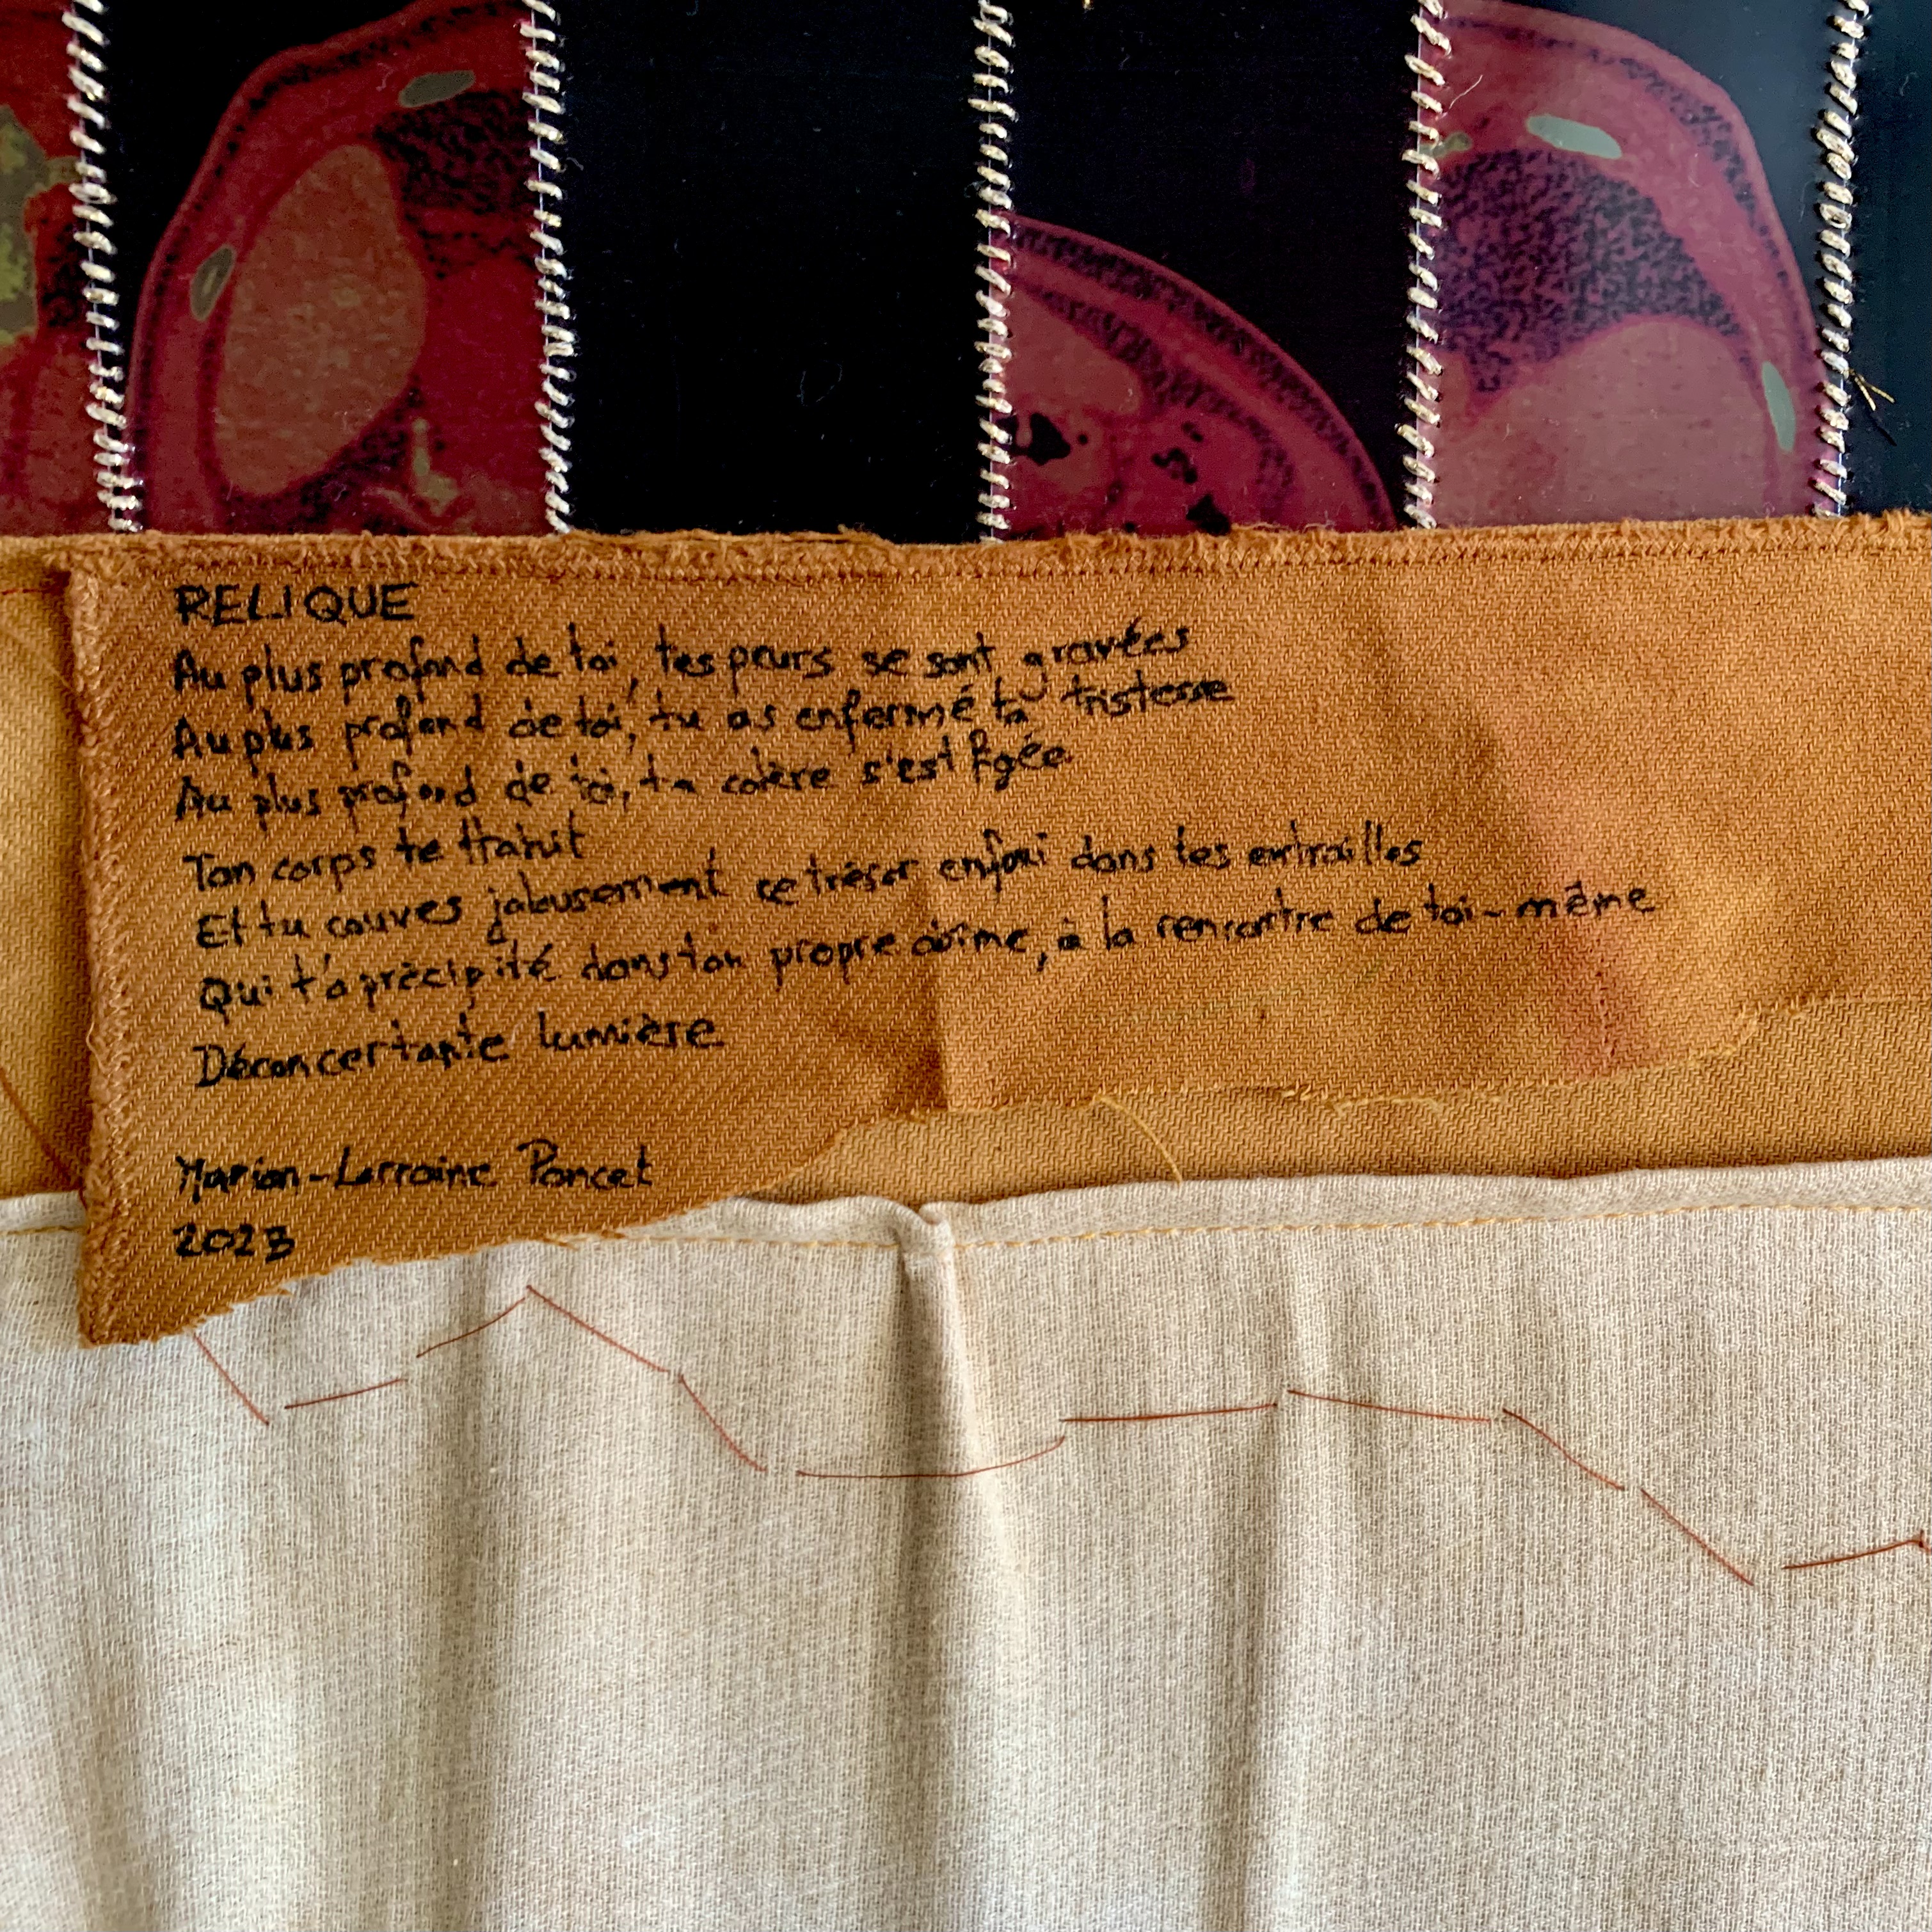 RELIQUE
Au plus profond de toi, tes peurs se sont gravées
Au plus profond de toi, tu as enfermé ta tristesse
Au plus profond de toi, ta colère s'est figée
Ton corps te trahit
Et tu couves jalousement ce trésor enfoui dans tes entrailles
Qui t'a précipité dans ton propre abîme, à la rencontre de toi-même
Déconcertante lumière
Marion-Lorraine Poncet
2023